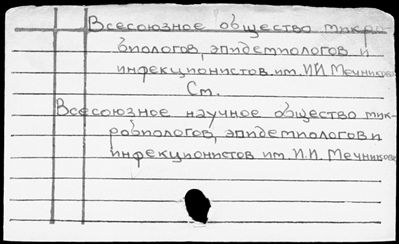 Всесоюзное общество микро-
биологов, эпидемиологов и
инфекционистов им. И.И. Мечникова
См.
Всесоюзное научное общество мик-
робиологов, эпидемиологов и
инфекционистов им. И.И. Мечникова